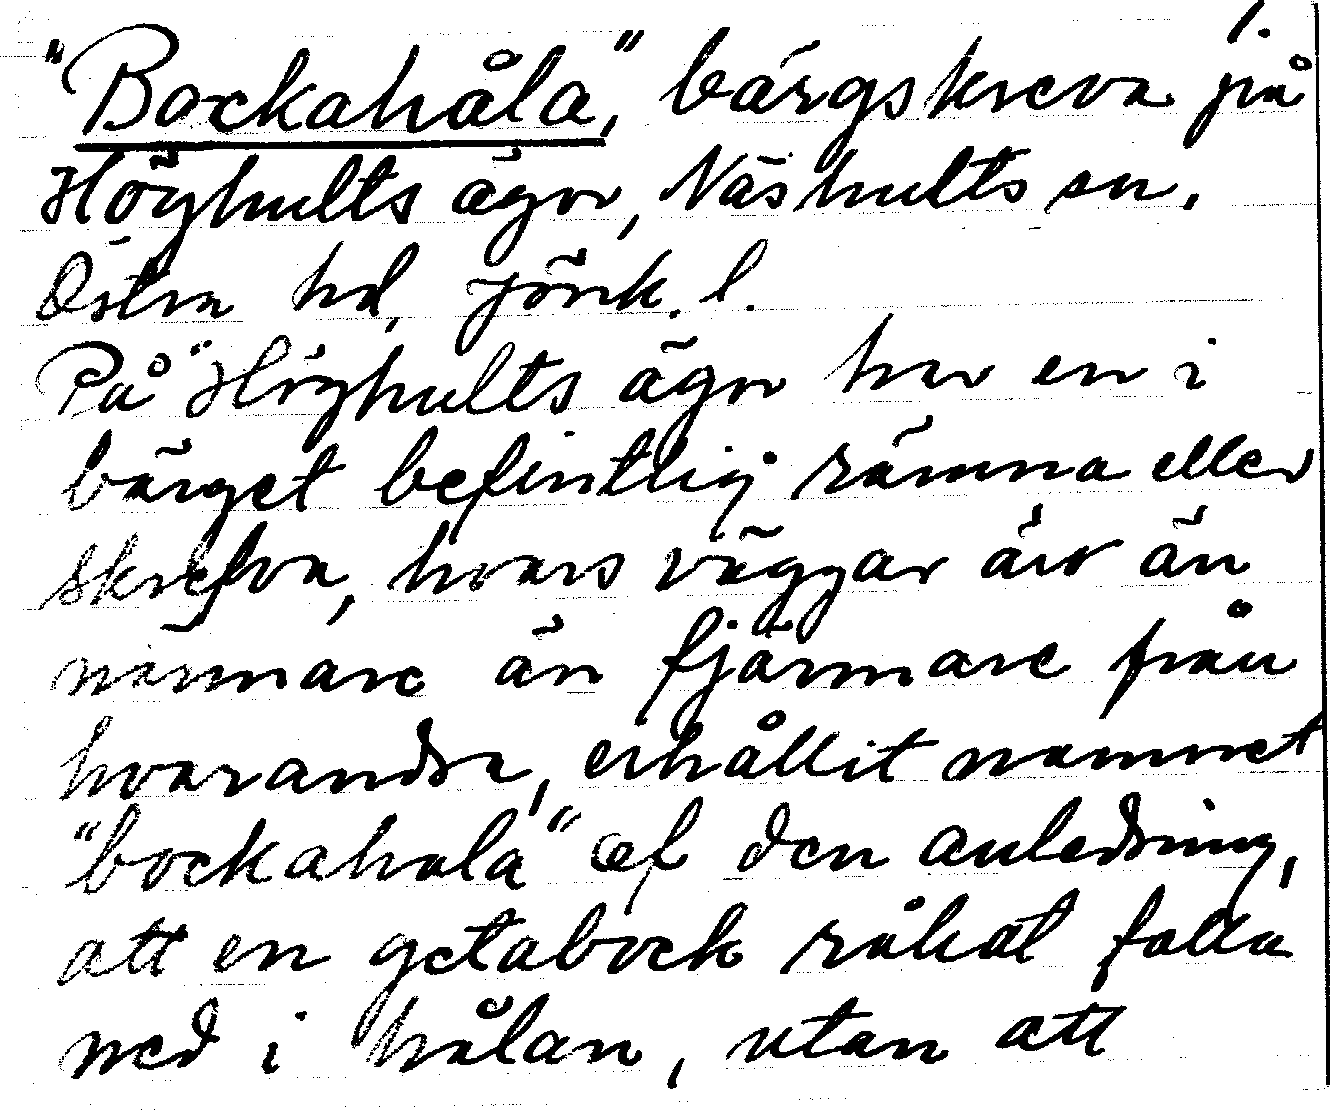 1.
"Bockahåla," bärgskreva på
Höghults ägor, Näshults sn.
Östra hd, Jönk. l.
På Höghults ägor har en i
bärget befintlig rämna eller
skrefva, hvars väggar äro än
närmare än fjärmare från
hvarandra, erhållit namnet
"bockahala" af den anledning,
att en getabock råkat falla
ned i hålan, utan att